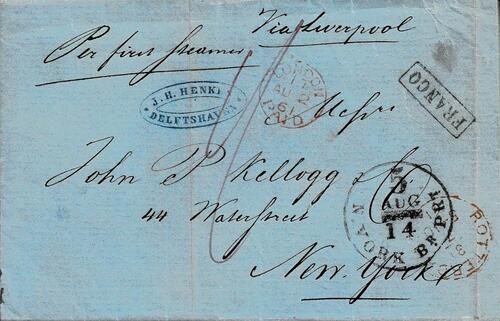 Via Liverpool
Per first steamer
LONDON
AU 2
61
PAID
FRANCO
J. H. HENKE
DELFTSHAVEN
Messrs
John P Kellogg & Co
44 Waterstreet
New York
5
AUG
14
N. YORK BR PKT